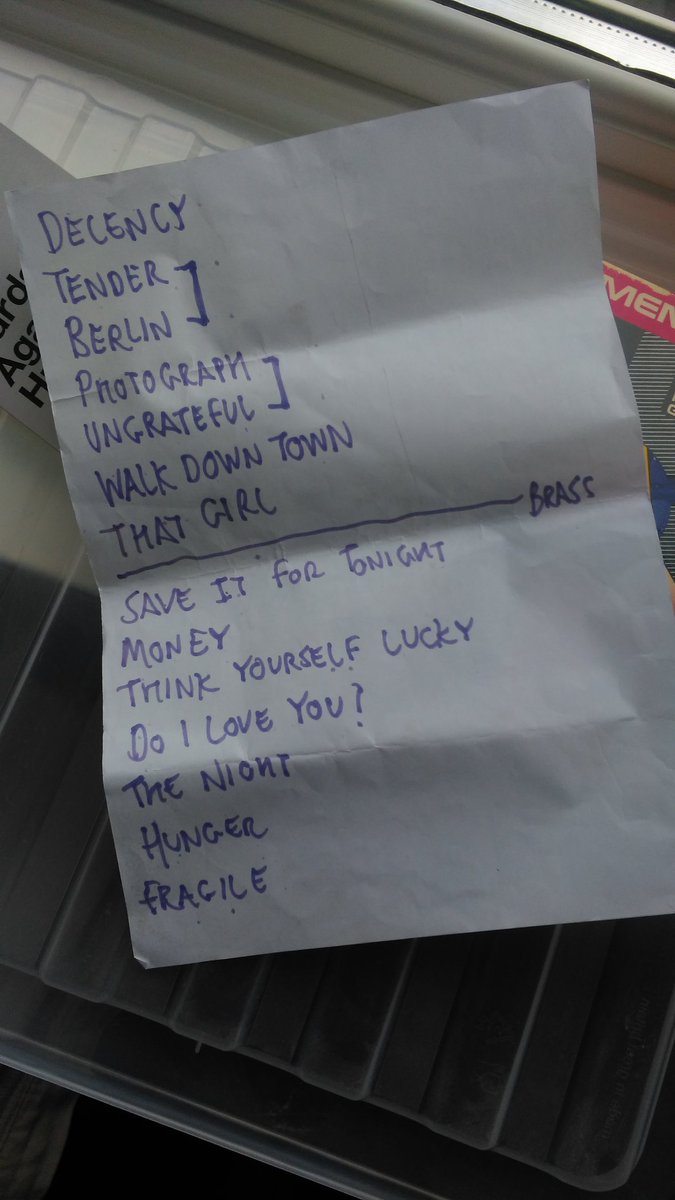 DECENCY
TENDER ]
BERLIN
PHOTOGRAPH ]
UNGRATEFUL
WALK DOWN TOWN
THAT GIRL
BRASS
SAVE IT FOR TONIGHT
MONEY
THINK YOURSELF LUCKY
DO I LOVE YOU?
THE NIGHT
HUNGER
FRAGILE
ards
Aga
H
MEN